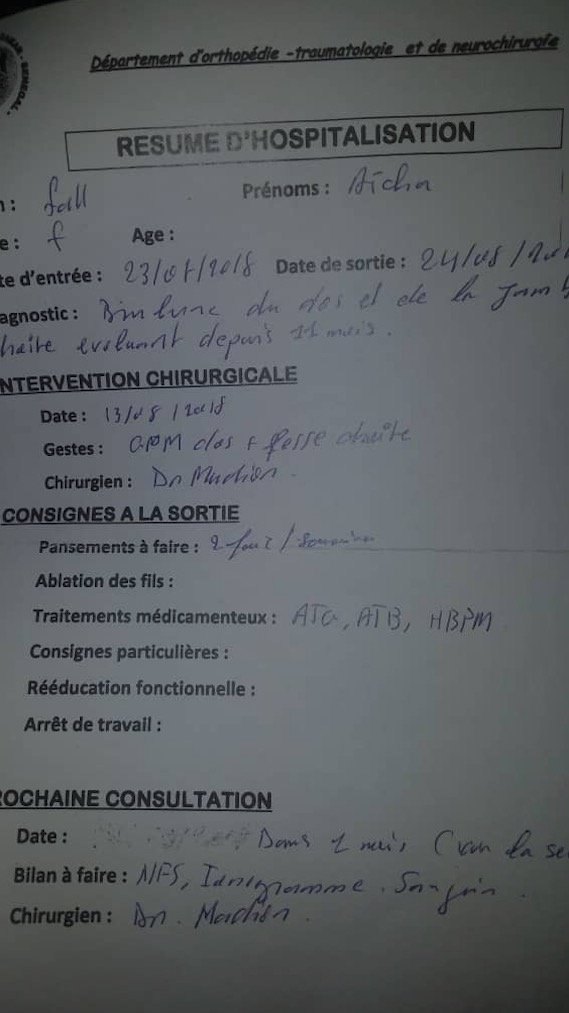 Département d'orthopédie -traumatologie et de neurochirurgie
SENEGAL
RESUME D'HOSPITALISATION
: fall Prénoms : Aïcha
e : f Age :
te d'entrée : 23/07/2018 Date de sortie : 24/08/
agnostic : du dos et de la Jamb
evoluant depuis 11 mois.
NTERVENTION CHIRURGICALE
Date : 13/08/2018
Gestes : dos + fesse droite
Chirurgien : Dr
CONSIGNES A LA SORTIE
Pansements à faire : 2 fois/Semaine
Ablation des fils :
Traitements médicamenteux : ATG, ATB, HBPM
Consignes particulières :
Rééducation fonctionnelle :
Arrêt de travail :
ROCHAINE CONSULTATION
Date : Dans 1 mois ( la se
Bilan à faire : NFS, Ionogramme Sanguin.
Chirurgien : Dr.